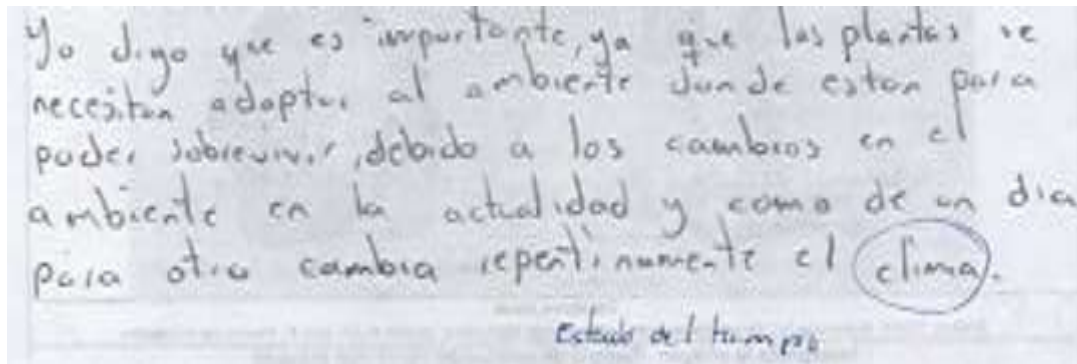 Yo digo que es importante, ya que las plantas se
necesitan adaptar al ambiente donde estan para
poder sobrevivir, debido a los cambios en el
ambiente en la actualidad y como de un dia
para otro cambia repentinamente el clima.
Estado del tiempo